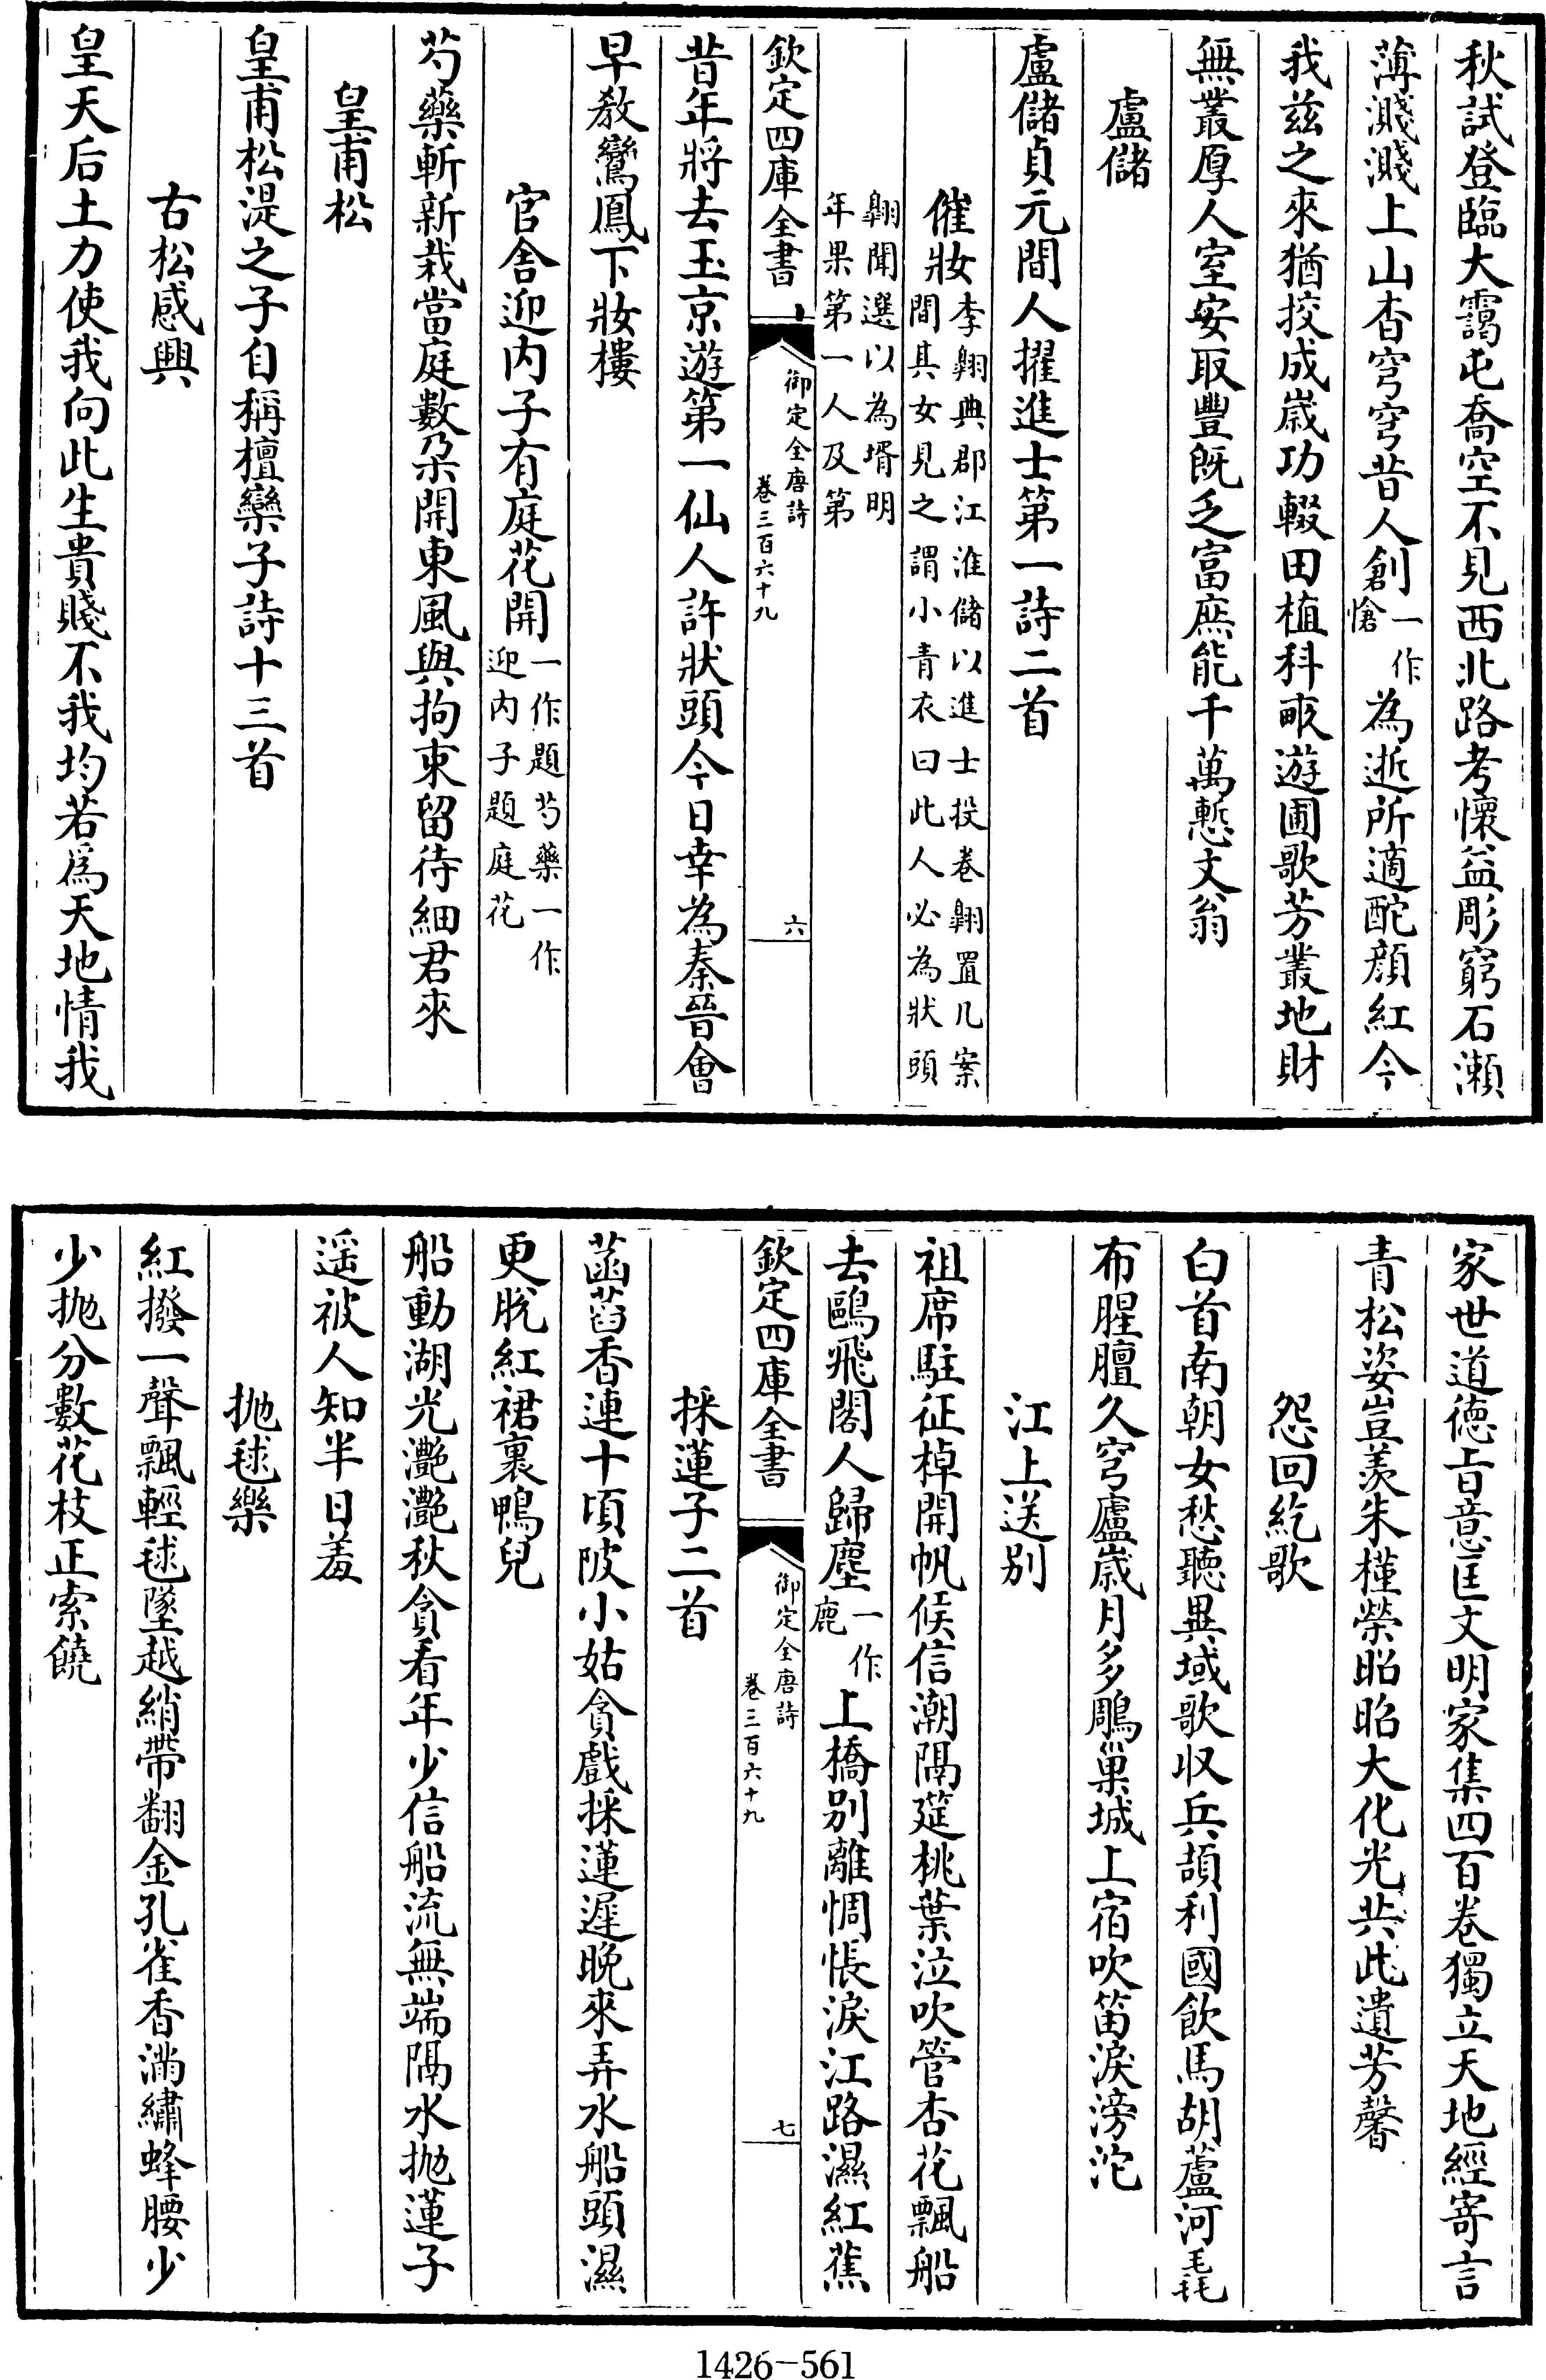 秋試登臨大靄屯喬空不見西北路考懷益彫窮石瀨
薄濺濺上山杳穹穹昔人創一作愴為逝所適酡顏紅今
我兹之來猶挍成嵗功輟田植科畞遊圃歌芳叢地財
無叢厚人室安取豐旣乏富庶能千萬慙文翁
盧儲
盧儲貞元間人擢進士第一詩二首
催妝李翺典郡江淮儲以進士投卷翺置几案
間其女見之謂小青衣曰此人必為狀頭
翺聞選以為壻明
年果第一人及第
欽定四庫全書
御定全唐詩
卷三百六十九
六
昔年將去玉京遊第一仙人許狀頭今日幸為秦晉會
早教鸞鳳下妝樓
官舍迎内子有庭花開一作題芍藥一作
迎内子題庭花
芍藥斬新栽當庭數朶開東風與拘束留待細君來
皇甫松
皇甫松湜之子自稱檀欒子詩十三首
古松感興
皇天后土力使我向此生貴賤不我均若爲天地情我
家世道德旨意匡文明家集四百卷獨立天地經寄言
青松姿豈羨朱槿榮昭昭大化光共此遺芳馨
怨回紇歌
白首南朝女愁聽異域歌収兵頡利國飲馬胡蘆河毳
布腥膻久穹廬嵗月多鵰巢城上宿吹笛淚滂沱
江上送别
祖席駐征棹開帆候信潮隔筵桃葉泣吹管杏花飄船
去鷗飛閣人歸塵一作鹿上橋别離惆悵淚江路濕紅蕉
欽定四庫全書
御定全唐詩
卷三百六十九
七
採蓮子二首
菡萏香連十頃陂小姑貪戲採蓮遲晚來弄水船頭濕
更脱紅裙裹鴨兒
船動湖光灔灔秋貪看年少信船流無端隔水抛蓮子
遥被人知半日羞
抛毬樂
紅撥一聲飄輕毬墜越綃帶翻金孔雀香滿繡蜂腰少
少抛分數花枝正索饒
1426-561